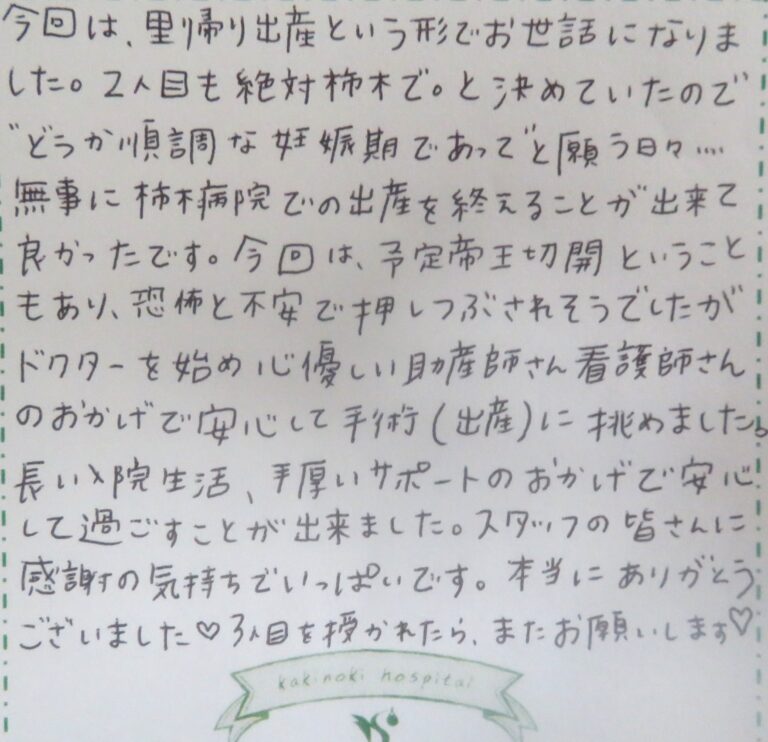 今回は、里り帰り出産という形でお世話になりま
した。2人目も絶対柿木で。と決めていたので
"どうか順調な妊娠期であって"と願う日々....
無事に柿木病院での出産を終えることが出来て
良かったです。今回は、予定帝王切開ということ
もあり、恐怖と不安で押しつぶされそうでしたが
ドクターを始め心優しい助産師さん看護師さん
のおかげで安心して手術(出産)に挑めました。
長い入院生活、手厚いサポートのおかげで安心
して過ごすことが出来ました。スタッフの皆さんに
感謝の気持ちでいっぱいです。本当にありがとう
ございました♡3人目を授かれたら、またお願いします♡
kakinoki hospital